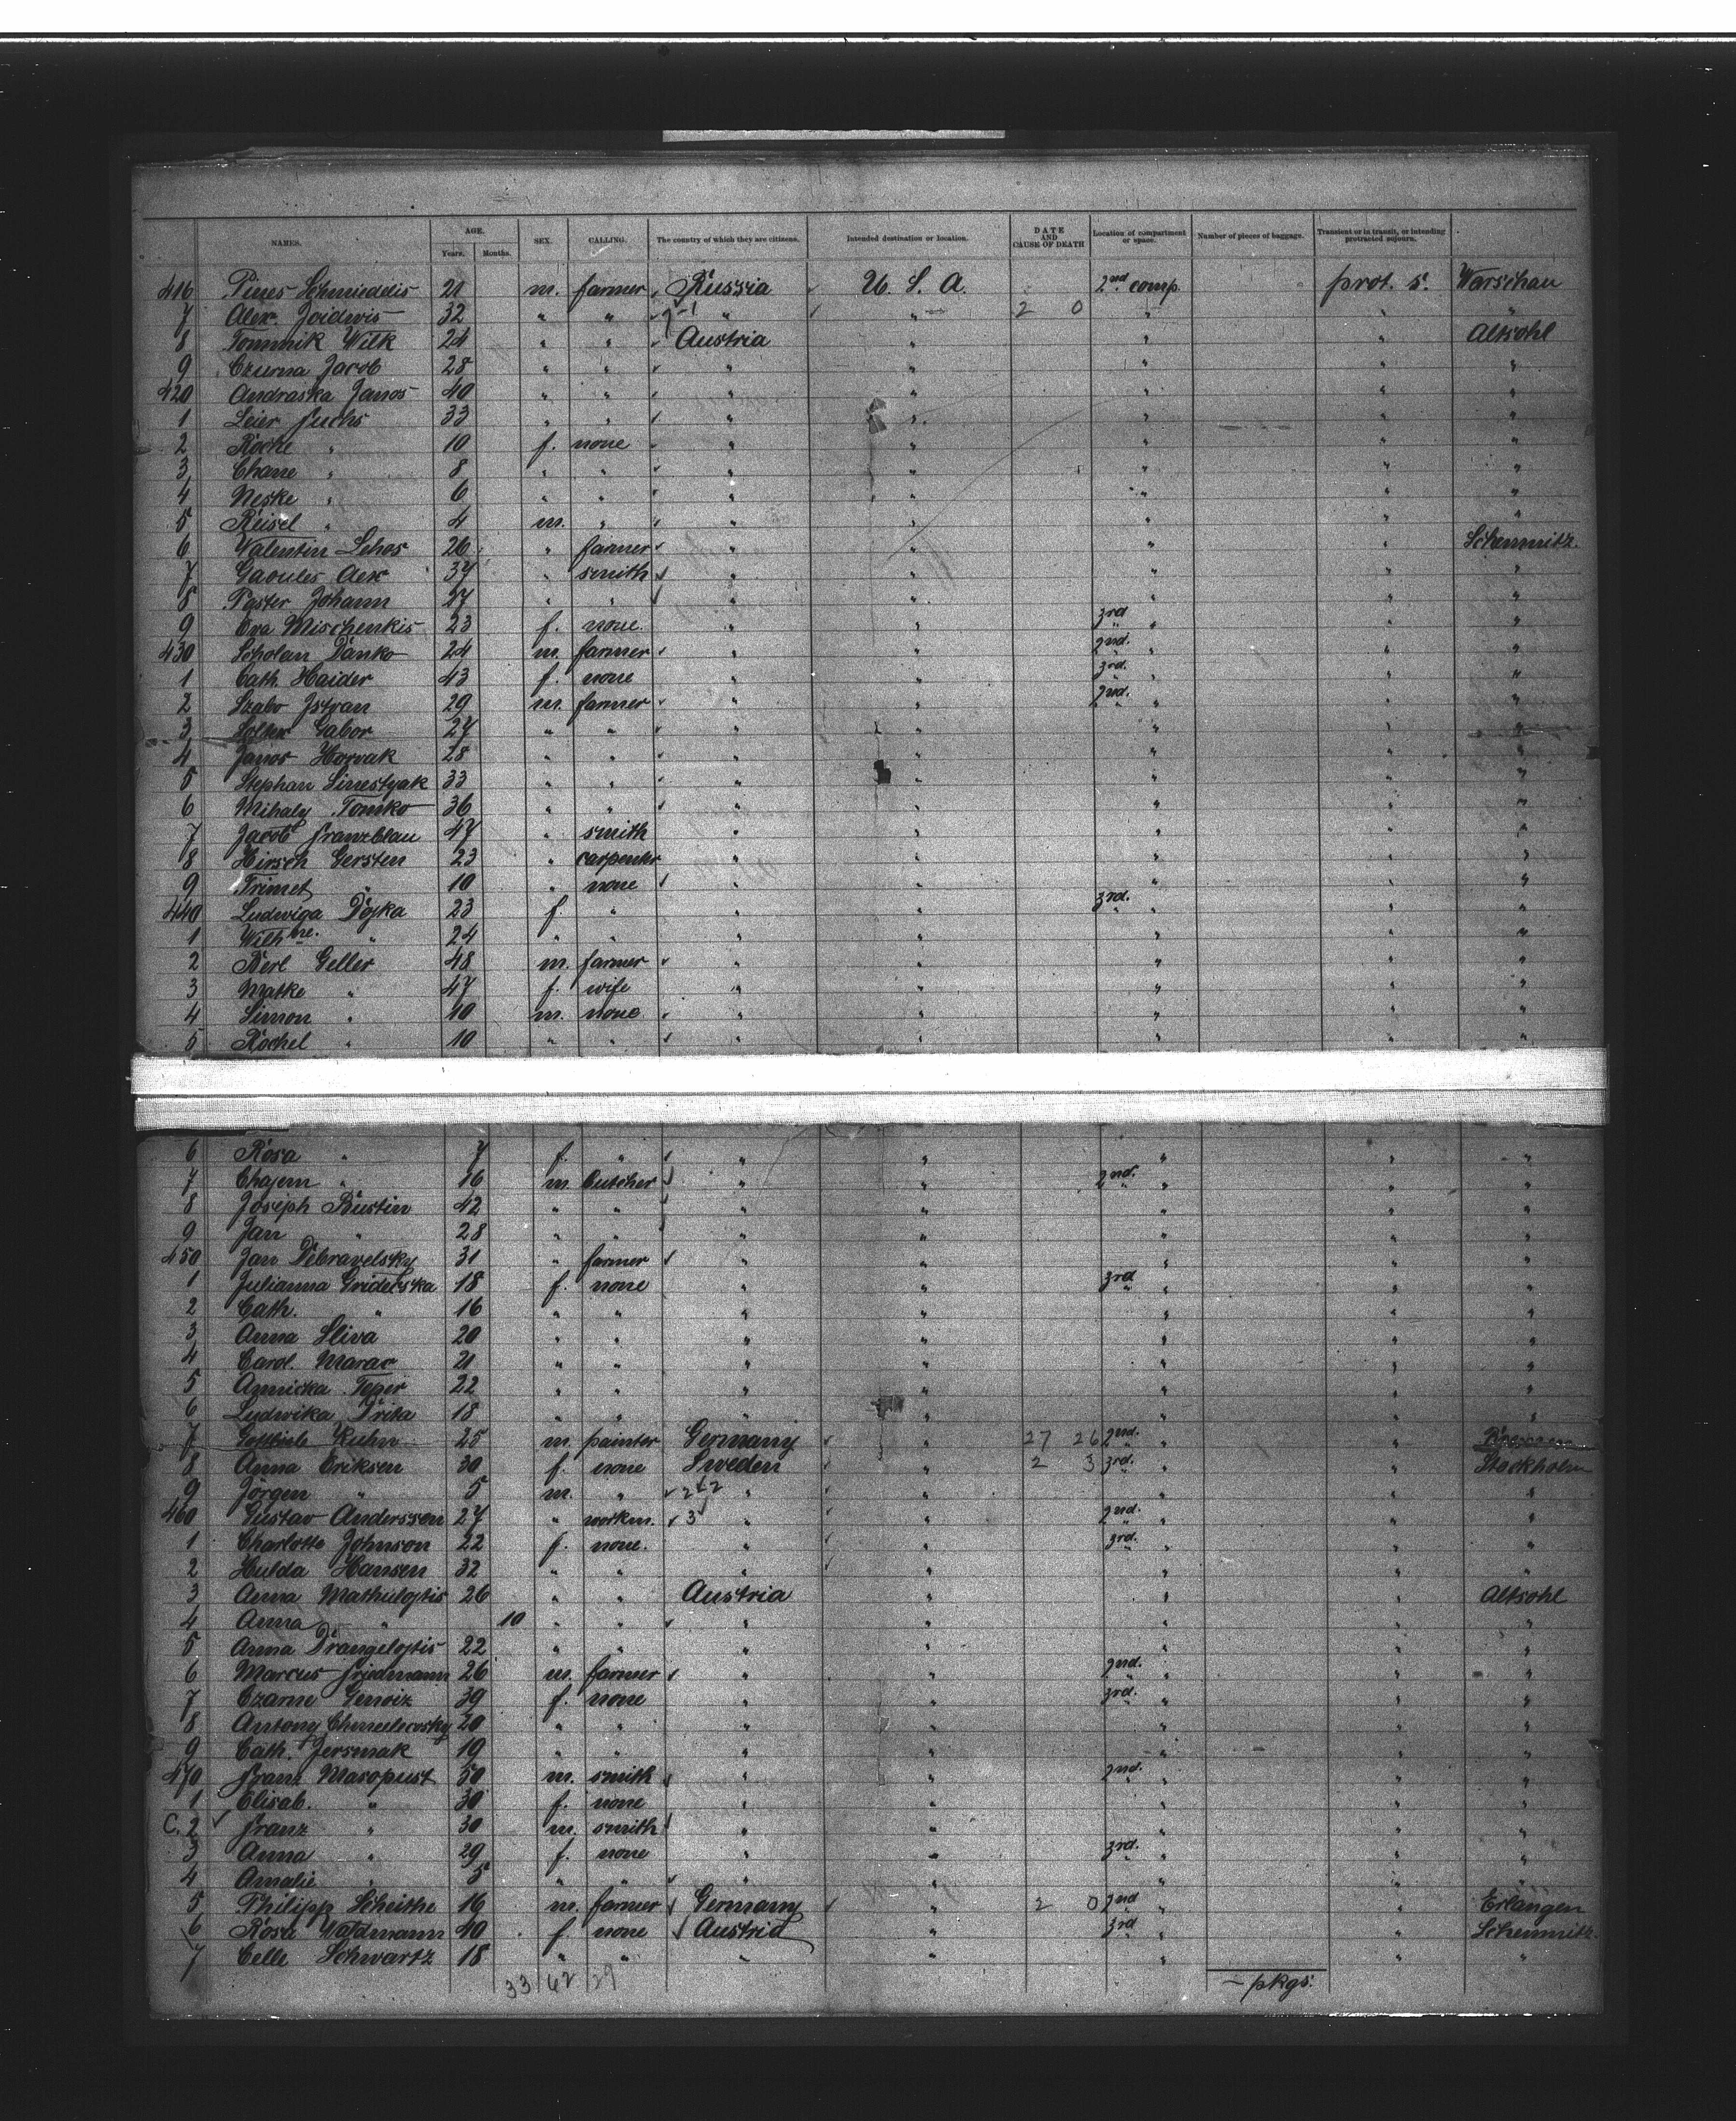 NAMES. AGE. Years. Months. SEX. CALLING. The country of which they are citizens. Intended destination or location. DATE AND CAUSE OF DEATH Location of compartment or space. Number of pieces of baggage. Transient or in transit, or intending protracted sojourn.
416 Pines Schmieddis 21 m. farmer Russia U. S. A. 2nd comp. prot. s. Warschau
7 Alex. Joidwis 32 " " " " 2 0 " " "
8 Tommik Wilk 24 " " Austria " " " Altsohl
9 Czurna Jacob 28 " " " " " " "
420 Andraska Janos 40 " " " " " " "
1 Leier Fuchs 33 " " " " " " "
2 Roche " 10 f. none " " " " "
3 Chane " 8 " " " " " " "
4 Neske " 6 " " " " " " "
5 Reisel " 4 m. " " " " " "
6 Valentin Lehos 26 " farmer " " " " Schemnitz.
7 Gaoules Alex 37 " smith " " " " "
8 Paster Johann 27 " " " " " " "
9 Eva Mischenkis 23 f. none. " " 3rd " " "
430 Scholan Danko 24 m. farmer " " 2nd. " " "
1 Cath. Haider 43 f. none " " 3rd. " " "
2 Szabo Istvan 29 m. farmer " " 2nd. " " "
3 Gabor 27 " " " " " " "
4 Janos Horvak 28 " " " " " " "
5 Stephan Sinestyak 33 " " " " " " "
6 Mihaly Tomko 36 " " " " " " "
7 Jacob Franzblau 47 " smith " " " " "
8 Hirsch Gersten 23 " carpenter " " " " "
9 Trimet " 10 " none " " " " "
440 Ludwiga Dojka 23 f. " " " 3rd. " " "
1 Wilhne. " 24 " " " " " " "
2 Berl Geller 48 m. farmer " " " " "
3 Matke " 47 f. wife " " " " "
4 Simon " 10 m. none " " " " "
5 Rochel " 10 " " " " " " "
6 Rosa " 7 f. " " " " " "
7 Chajem " 16 m. butcher " " 2nd. " " "
8 Joseph Bustin 42 " " " " " " "
9 Jan " 28 " " " " " " "
450 Jan Debravelsky 31 " farmer " " " " "
1 Julianna Griderska 18 f. none " " 3rd " " "
2 Cath. " 16 " " " " " " "
3 Anna Sliva 20 " " " " " " "
4 Carol. Marac 21 " " " " " " "
5 Annicka Toper 22 " " " " " " "
6 Ludwika Drila 18 " " " " " " "
7 Gottlieb Kuhn 25 m. painter Germany " 27 26 2nd. " " Bremen
8 Anna Eriksen 30 f. none Sweden " 2 3 3rd. " " Stockholm
9 Jörgen " 5 m. " " " " " "
460 Gustav Anderssen 27 " workm. 3 " " 2nd. " " "
1 Charlotte Johnson 22 f. none. " " 3rd. " " "
2 Hulda Hansen 32 " " " " " " "
3 Anna Mathulojtis 26 " " Austria " " " Altsohl
4 Anna " 10 " " " " " " "
5 Anna Drangelojtis 22 " " " " " " "
6 Marcus Friedmann 26 m. farmer " " 2nd. " " "
7 Czarne Genoiz 39 f. none " " 3rd. " " "
8 Antony Chmielevsky 20 " " " " " " "
9 Cath. Jersmak 19 " " " " " " "
470 Franz Masopust 50 m. smith " " 2nd. " " "
1 Elisab. " 30 f. none " " " " "
C. 2 Franz " 30 m. smith " " " " "
3 Anna " 29 f. none " " 3rd. " " "
4 Amalie " 5 " " " " " " "
5 Philipp Scheithe 16 m. farmer Germany " 2 0 2nd " " Erlangen
6 Rosa Waldmann 40 f. none Austria " 3rd " " Schemnitz.
7 Celle Schwartz 18 " " " " " " "
33 62 29 — pkgs.